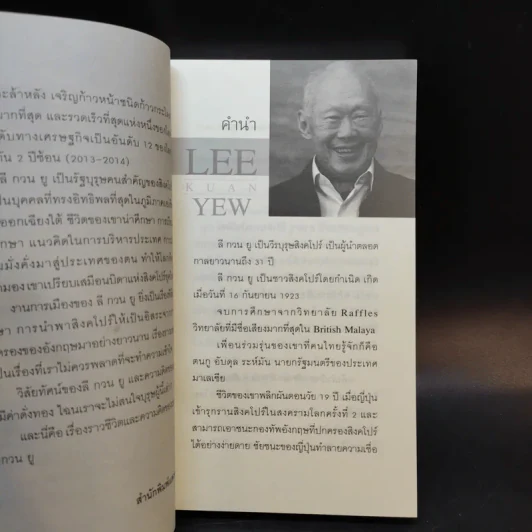 ะล้าหลัง เจริญก้าวหน้าชนิดก้าวกระโดด
มากที่สุด และรวดเร็วที่สุดแห่งหนึ่งของ
ดับทางเศรษฐกิจเป็นอันดับ 12 ของ
กัน 2 ปีซ้อน (2013-2014)
ลี กวน ยู เป็นรัฐบุรุษคนสำคัญของ
เป็นบุคคลที่ทรงอิทธิพลที่สุดในภูมิภาค
ออกเฉียงใต้ ชีวิตของเขาน่าศึกษา
กษา แนวคิดในการบริหารประเทศ
มมั่งคั่งมาสู่ประเทศของตน ทำให้
มองเขาเปรียบเสมือนบิดาแห่งสิงคโปร์
งานการเมืองของ ลี กวน ยู ยิ่งเป็น
ษา การนำพาสิงคโปร์ให้เป็นอิสระจาก
ครองของอังกฤษมาอย่างยาวนาน
เป็นเรื่องที่เราไม่ควรพลาดที่จะทำความ
วิสัยทัศน์ของลี กวน ยู และความคิด
มีค่าดั่งทอง ไฉนเราจะไม่สนใจบุรุษผู้นี้
และนี่คือ เรื่องราวชีวิตและความคิด
กวน ยู
คำนำ
LEE
KUAN
YEW
ลี กวน ยู เป็นวีรบุรุษสิงคโปร์ เป็นผู้นำตลอด
กาลยาวนานถึง 31 ปี
ลี กวน ยู เป็นชาวสิงคโปร์โดยกำเนิด เกิด
เมื่อวันที่ 16 กันยายน 1923
จบการศึกษาจากวิทยาลัย Raffles
วิทยาลัยที่มีชื่อเสียงมากที่สุดใน British Malaya
เพื่อนร่วมรุ่นของเขาที่คนไทยรู้จักก็คือ
ตนกู อับดุล ระห์มัน นายกรัฐมนตรีของประเทศ
มาเลเซีย
ชีวิตของเขาพลิกผันตอนวัย 19 ปี เมื่อญี่ปุ่น
เข้ารุกรานสิงคโปร์ในสงครามโลกครั้งที่ 2 และ
สามารถเอาชนะกองทัพอังกฤษที่ปกครองสิงคโปร์
ได้อย่างง่ายดาย ชัยชนะของญี่ปุ่นทำลายความเชื่อ